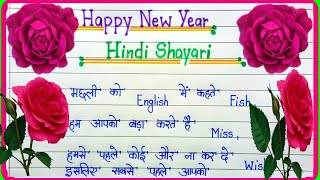 Happy New Year
Hindi Shayari
मछली को English में कहते Fish,
हम आपको बड़ा करते है Miss,
हमसे पहले कोई और ना कर दे
इसलिए सबसे पहले आपको Wis